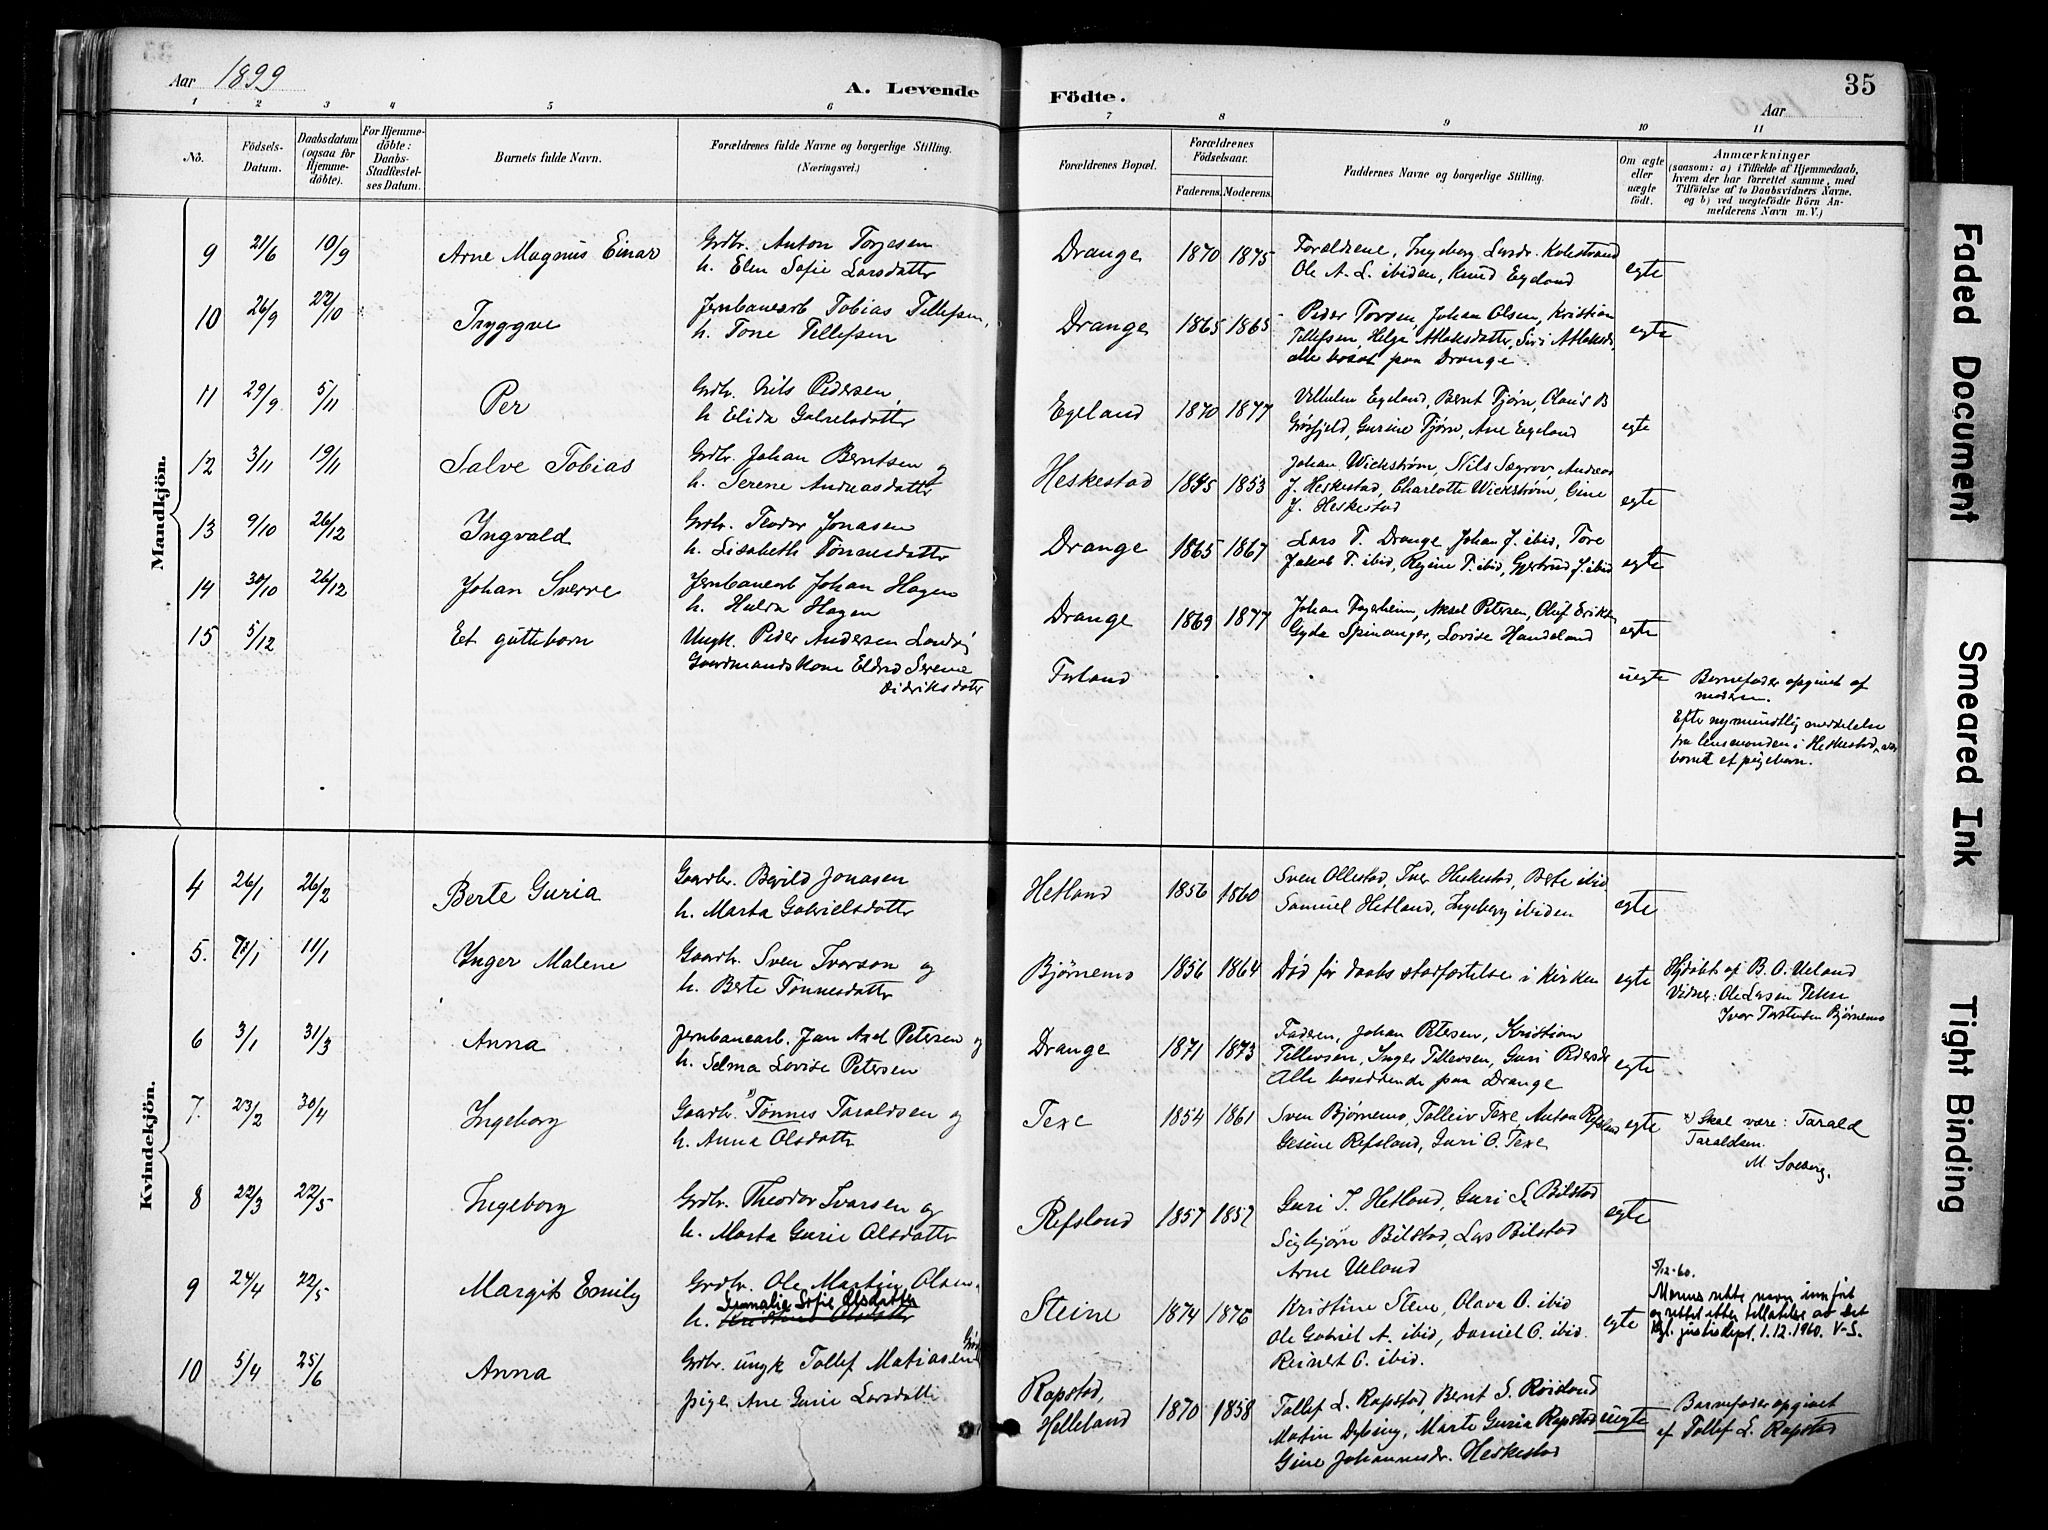 Aar 1899
A. Levende
Födte.
Aar
35
1 2 3 4 5 6 7 8 9 10 11
No.
Födsels-Datum.
Daabsdatum (ogsaa for Hjemme-döbte).
For Hjemme-döbte: Daabs-Stadfæstel-ses Datum.
Barnets fulde Navn.
Forældrenes fulde Navne og borgerlige Stilling. (Næringsvei.)
Forældrenes Bopæl.
Forældrenes Födselsaar.
Faderens. Moderens.
Faddernes Navne og borgerlige Stilling.
Om ægte eller uægte födt.
Anmærkninger
(saasom: a) i Tilfælde af Hjemmedaab,
hvem der har forrettet samme, med
Tilföielse af to Daabsvidners Navne.
og b) ved uægtefödte Börn An-
melderens Navn m. V.)
Mandkjön.
9 21/6 10/9 Arne Magnus Einar Grdbr. Anton Torjesen Drange 1870 1875 Forældrene, Ingeborg Larsdr. Kolestrand
h. Elen Sofie Larsdatter Ole A. L. ibiden, Knud Egeland egte
10 26/9 22/10 Tryggve Jernbanearb Tobias Tillefsen, Drange 1865 1865 Peder Torsen, Johan Olsen, Kristian
h. Tone Tillefsen Tillefsen, Helga Atlaksdatter, Siri Atlaksdr, egte
alle bosat paa Drange.
11 29/9 5/11 Per Grdbr. Nils Pedersen, Egeland 1870 1877 Vilhelm Egeland, Bernt Tjørn, Claus B
h Elida Gabrielsdatter Grøsfjeld, Gurine Tjørn, Ane Egeland egte
12 3/11 19/11 Salve Tobias Grdbr. Johan Berntsen og Heskestad 1855 1853 Johan Wickstrøm, Nils Sægrov, Andreas
h. Serene Andreasdatter J. Heskestad, Charlotte Wickstrøm, Gine egte
J. Heskestad
13 9/10 26/12 Ingvald Grdbr. Teodor Jonasen Drange 1865 1867 Lars T. Drange, Johan J. ibid, Tore
h. Lisabeth Tønnesdatter Jakob T. ibid, Regine T. ibid, Gjertrud J. ibid egte
14 30/10 26/12 Johan Sverre Jernbanearb Johan Hagen Drange 1869 1877 Johan Fagerheim, Aksel Petersen, Oluf Eriksen
h. Hulda Hagen Gyda Spinanger, Lovise Handeland egte
15 5/12 Eet gutteborn Ungk. Peder Andersen
Gaardmandskone Eldrid Serene
Didriksdater
Forland uegte Bernefader opgivet af
moderen.
Efter ny mundtlig meddelelse
fra lensmanden i Heskestad, var
barnet et pigebarn.
Kvindekjön.
4 26/1 26/2 Berte Guria Gaardbr. Bevild Jonasen Hetland 1856 1860 Sven Ollestad, Iver Heskestad, Berte ibid
h. Marta Gabrielsdatter Samuel Hetland, Ingeborg ibiden egte
5. 11/1 Inger Malene Gaardbr. Sven Ivarson og Bjørnemo 1856 1864 Død før daabs stadfæstelse i kirken egte Hjdøbt af B. O. Ueland
h. Berte Tønnesdatter Vidner: Ole Larsen Tekse
Ivar Torstensen Bjørnemo
6 3/1 31/3 Anna Jernbanearb. Jan Axel Petersen og Drange 1871 1873 Faderen, Johan Petersen, Kristian
h. Selma Lovise Petersen Tillevsen, Inger Tillevsen, Guri Pedersdr egte
Alle boseddende paa Drange
7. 23/2 30/4 Ingeborg Gaardbr. Tønnes Taraldsen og Texe 1854 1861 Sven Bjørnemo, Tolleiv Texe, Anton Refsland egte x) Skal være: Tarald
h. Anna Olsdatter Gesine Refsland, Guri O. Texe Taraldsen.
M. Solberg.
8 22/3 22/5 Ingeborg Grdbr. Theodor Ivarsen og Refsland 1857 1857 Guri I. Hetland, Guri S. Bilstad
h. Marta Gurie Olsdatter Sigbjørn Bilstad, Lars Bilstad egte
Arne Ueland
9 24/4 22/5 Margit Emily Grdbr. Ole Martin Olsen Steine 1874 1876 Kristine Stene, Olava O. ibid
h. Sofie Olsdatter Ole Gabriel A. ibid, Daniel O. ibid. egte
Reinert O. ibid.
5/12-60.
Morens rette navn innført
og rettet etter tillatelse av det
Kgl. justisdept. 1.12.1960. V-S.
10 5/4 25/6 Anna Grdbr. ungk Tollef Matiasen Rapstad, 1870 1858 Tollef L. Rapstad, Bernt S. Røisland
pige Ane Gurie Larsdatter Helleland Martin Dybing, Marte Guria Rapstad uegte Barnefader opgivet
Gine Johannesdr. Heskestad af Tollef L. Rapstad
Faded Document
Smeared Ink
Tight Binding